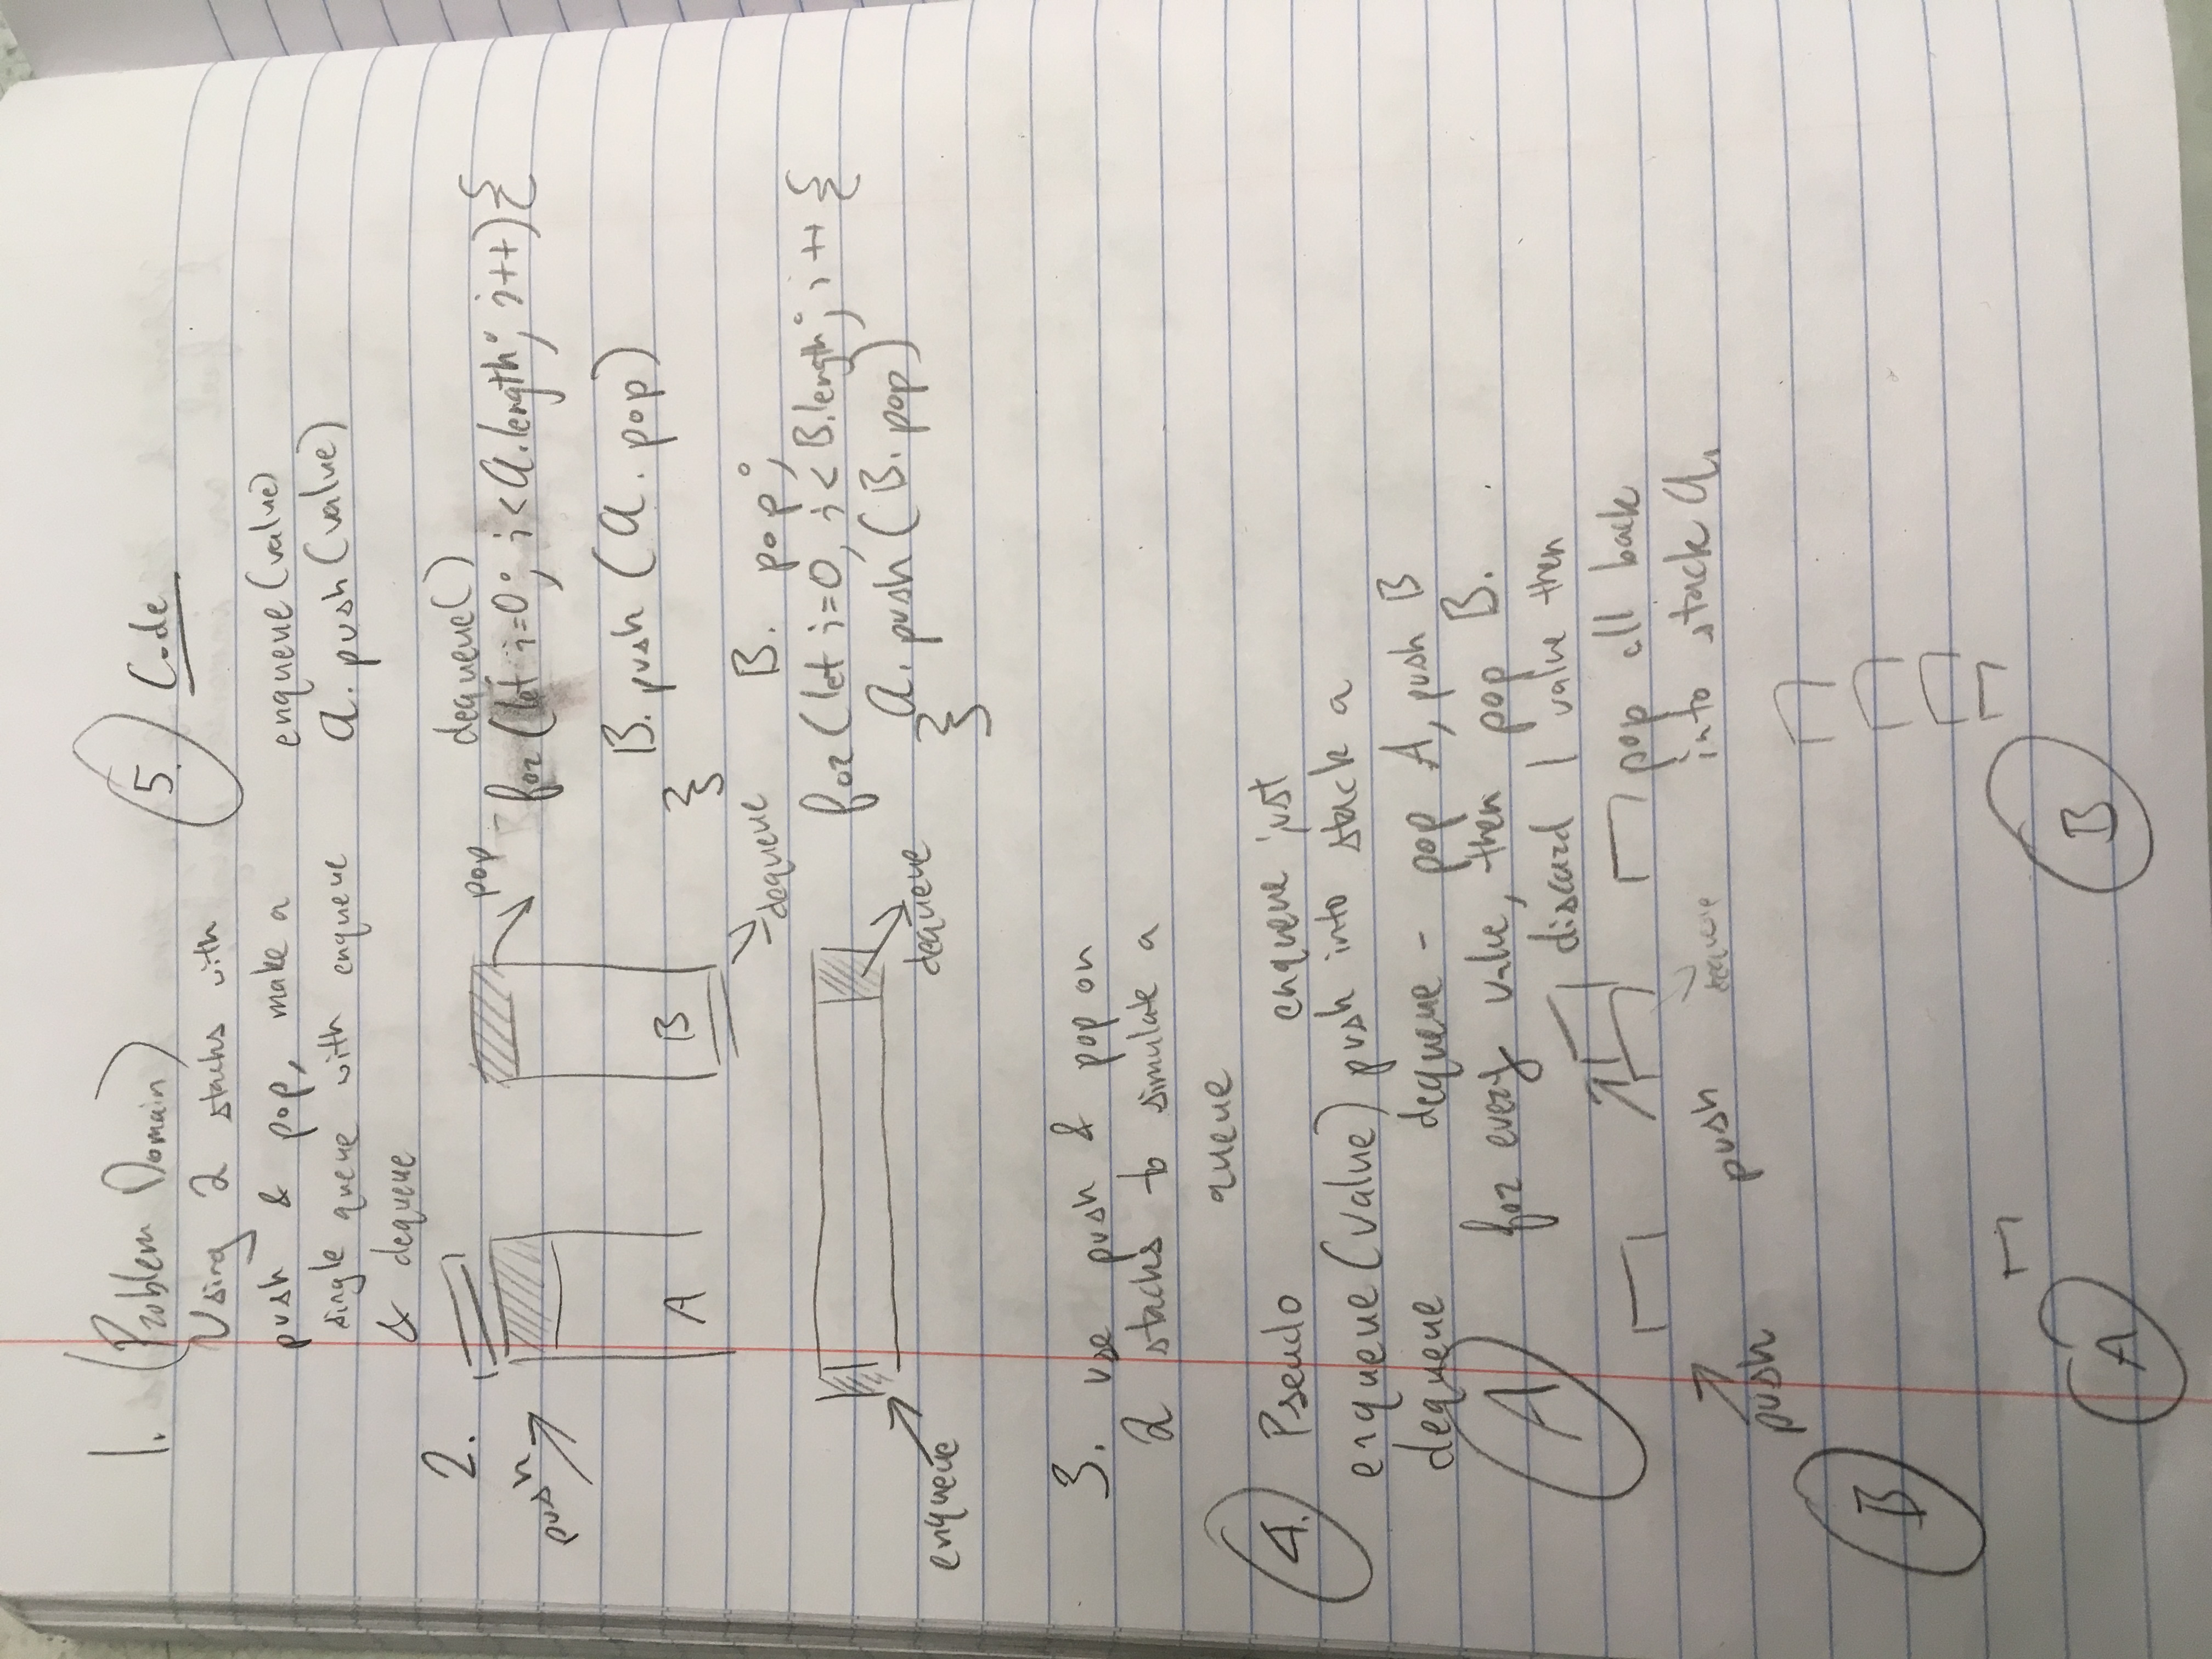 1. (Problem Domain)
Using 2 stacks with
push & pop, make a
single queue with enqueue
& dequeue
2.
push
A
B
pop
dequeue
enqueue
dequeue
3. use push & pop on
2 stacks to simulate a
queue
4. Pseudo
enqueue just
enqueue(value) push into stack a
dequeue
dequeue - pop A, push B
for every value, then pop B.
discard 1 value then
pop all back
into stack a.
A
push
push
dequeue
B
A
B
5. Code
enqueue(value)
a.push(value)
dequeue()
for(let i=0; i<a.length; i++){
B.push(a.pop)
}
B.pop;
for(let i=0, i<B.length; i++{
a.push(B.pop)
}